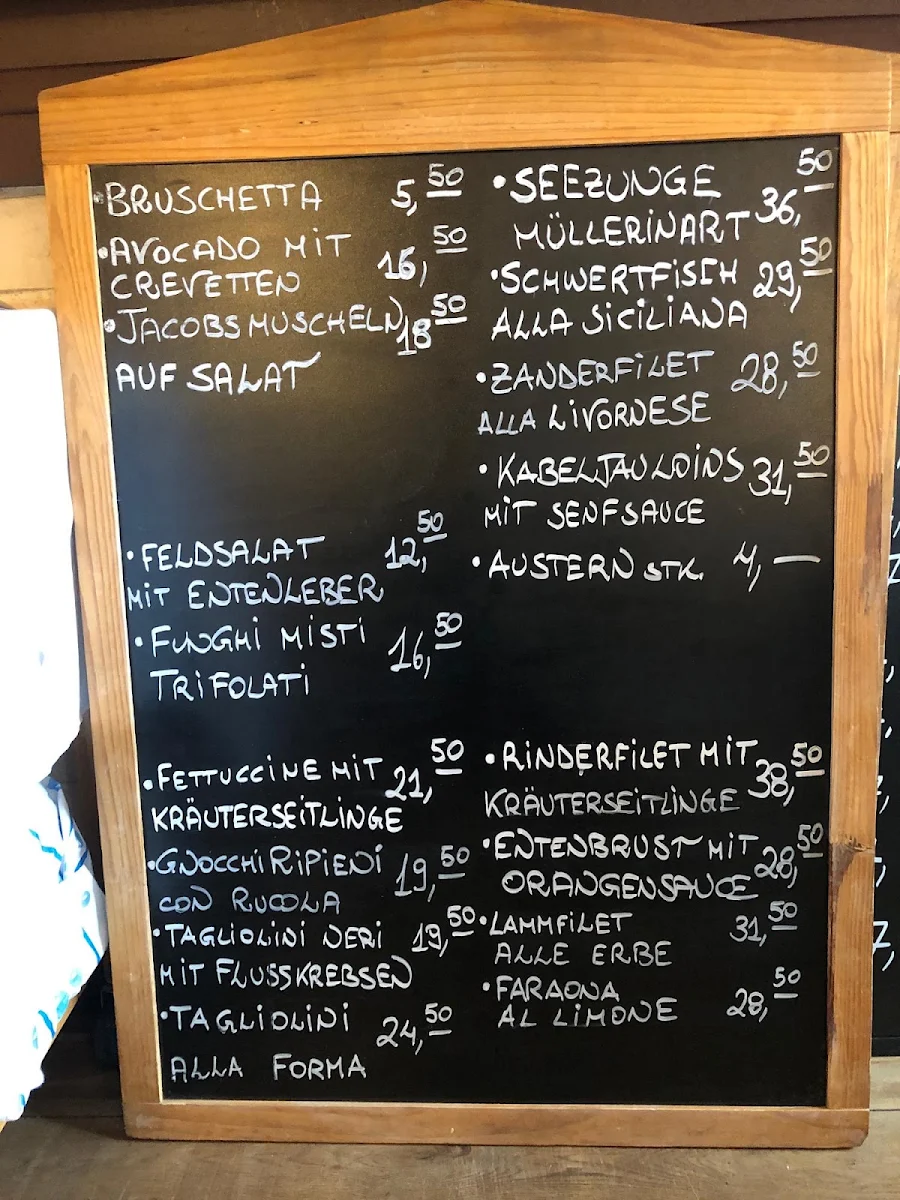 • BRUSCHETTA 5,50
• AVOCADO MIT 16,50
CREVETTEN
• JACOBSMUSCHELN 18,50
AUF SALAT
• FELDSALAT 12,50
MIT ENTENLEBER
• FUNGHI MISTI 16,50
TRIFOLATI
• FETTUCCINE MIT 21,50
KRÄUTERSEITLINGE
• GNOCCHI RIPIENI 19,50
CON RUCOLA
• TAGLIOLINI NERI 19,50
MIT FLUSSKREBSEN
• TAGLIOLINI 24,50
ALLA FORMA
• SEEZUNGE 36,50
MÜLLERINART
• SCHWERTFISCH 29,50
ALLA SICILIANA
• ZANDERFILET 28,50
ALLA LIVORNESE
• KABELJAULOINS 31,50
MIT SENFSAUCE
• AUSTERN STK. 4,—
• RINDERFILET MIT 38,50
KRÄUTERSEITLINGE
• ENTENBRUST MIT 28,50
ORANGENSAUCE
• LAMMFILET 31,50
ALLE ERBE
• FARAONA 28,50
AL LIMONE